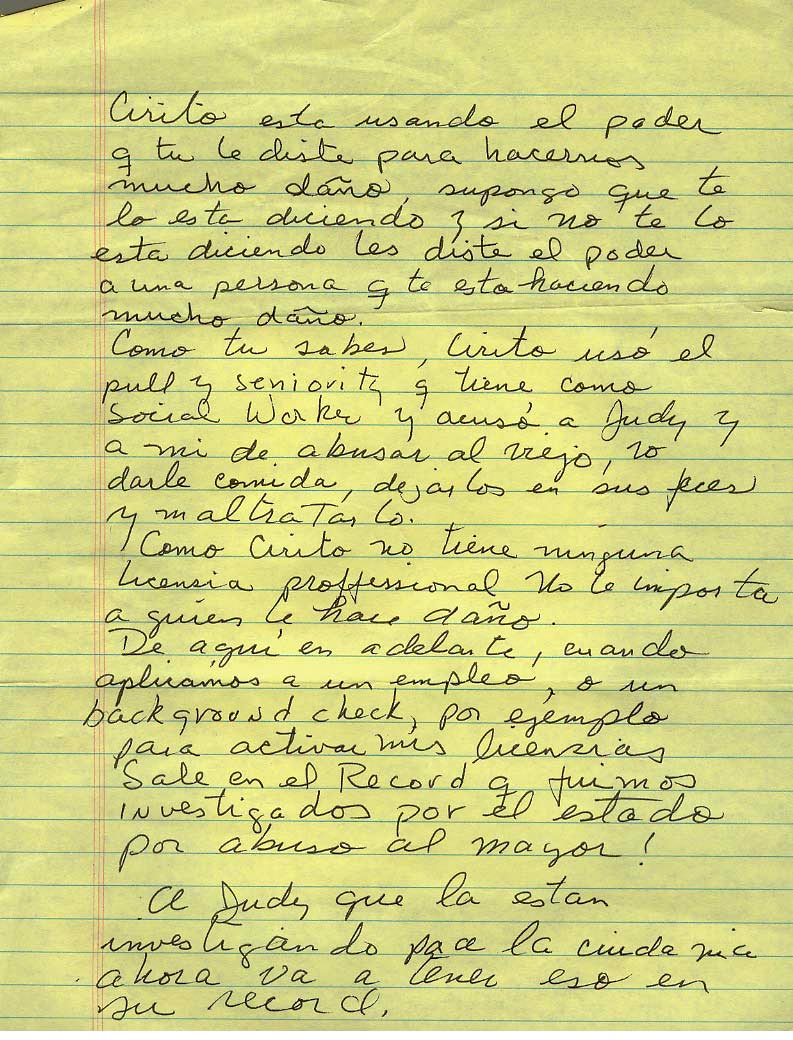 Cirito esta usando el poder
q tu le diste para hacernos
mucho daño, supongo que te
lo esta diciendo y si no te lo
esta diciendo les diste el poder
a una persona q te esta haciendo
mucho daño.
Como tu sabes, Cirito usó el
pull y seniority q tiene como
Social Worker y acusó a Judy y
a mi de abusar al viejo, no
darle comida, dejarlos en sus
y maltratarlo.
Como Cirito no tiene ninguna
licensia proffessional no le importa
a quien le hace daño.
De aquí en adelante, cuando
aplicámos a un empleo, o un
background check, por ejemplo
para activar mis licensias
Sale en el Record q fuimos
investigados por el estado
por abuso al mayor!
A Judy que la estan
investigando para la ciudania
ahora va a tener eso en
su record.